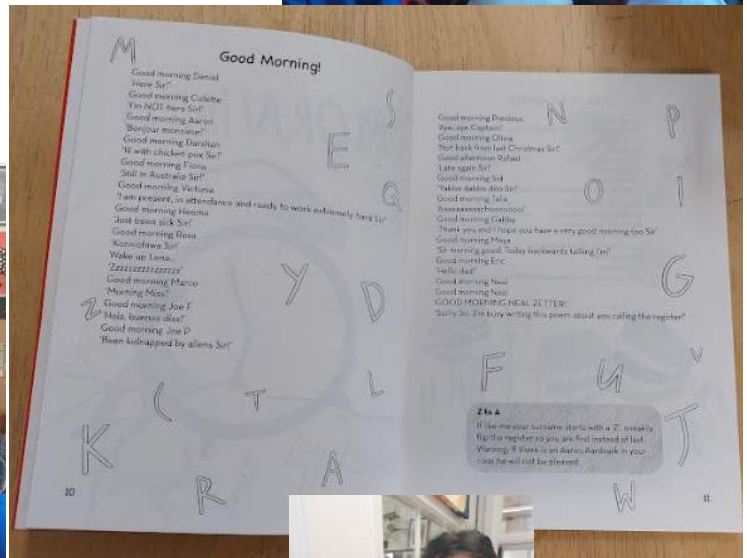 Good Morning!
Good morning Daniel
'Here Sir!'
Good morning Colette
'I'm NOT here Sir!'
Good morning Aaron
'Bonjour monsieur!'
Good morning Darshan
'Ill with chicken pox Sir!'
Good morning Fiona
'Still in Australia Sir!'
Good morning Victoria
'I am present, in attendance and ready to work extremely hard Sir'
Good morning Heema
'Just been sick Sir!'
Good morning Rosa
'Konnichiwa Sir!'
Wake up Lena...
'Zzzzzzzzzzzzzzz'
Good morning Marco
'Morning Miss!'
Good morning Joe F
'Hola, buenos dias!'
Good morning Joe P
'Been kidnapped by aliens Sir!'
10
Good morning Precious
'Aye, aye Captain!'
Good morning Olivia
'Not back from last Christmas Sir!'
Good afternoon Rafael
'Late again Sir!'
Good morning Sid
'Yabba dabba doo Sir!'
Good morning Talia
Good morning Gabby
'Thank you and I hope you have a very good morning too Sir'
Good morning Maya
'Sir morning good. Today backwards talking I'm!'
Good morning Eric
'Hello dad!'
Good morning Neal
Good morning Neal
GOOD MORNING NEAL ZETTER!
'Sorry Sir, I'm busy writing this poem about you calling the register!'
Z to A
If like me your surname starts with a 'Z', sneakily
flip the register so you are first instead of last.
Warning: If there is an Aaron Aardvark in your
class he will not be pleased.
11
M
S
E
Q
Y
D
Z
C
T
L
K
R
A
N
P
O
I
G
F
U
V
J
W